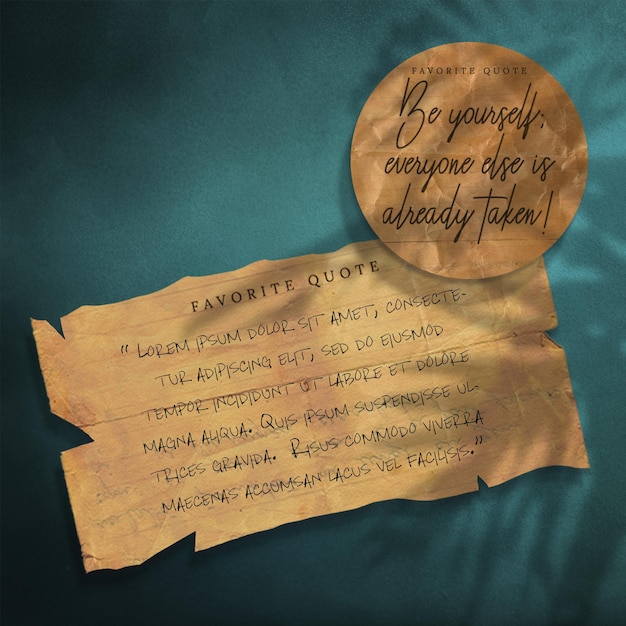 FAVORITE QUOTE
Be yourself;
everyone else is
already taken!
FAVORITE QUOTE
"LOREM IPSUM DOLOR SIT AMET, CONSECTE-
TUR ADIPISCING ELIT, SED DO EIUSMOD
TEMPOR INCIDIDUNT UT LABORE ET DOLORE
MAGNA ALIQUA. QUIS IPSUM SUSPENDISSE UL-
TRICES GRAVIDA. RISUS COMMODO VIVERRA
MAECENAS ACCUMSAN LACUS VEL FACILISIS."